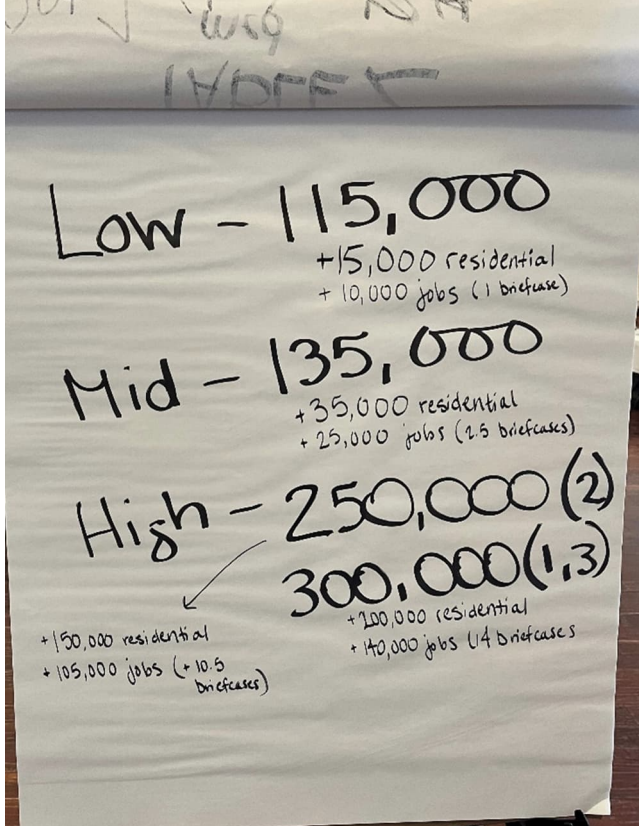 Low - 115,000
+15,000 residential
+ 10,000 jobs (1 briefcase)
Mid - 135,000
+35,000 residential
+ 25,000 jobs (2.5 briefcases)
High - 250,000 (2)
300,000 (1,3)
+200,000 residential
+ 140,000 jobs (14 briefcases
+150,000 residential
+ 105,000 jobs (+ 10.5
briefcases)